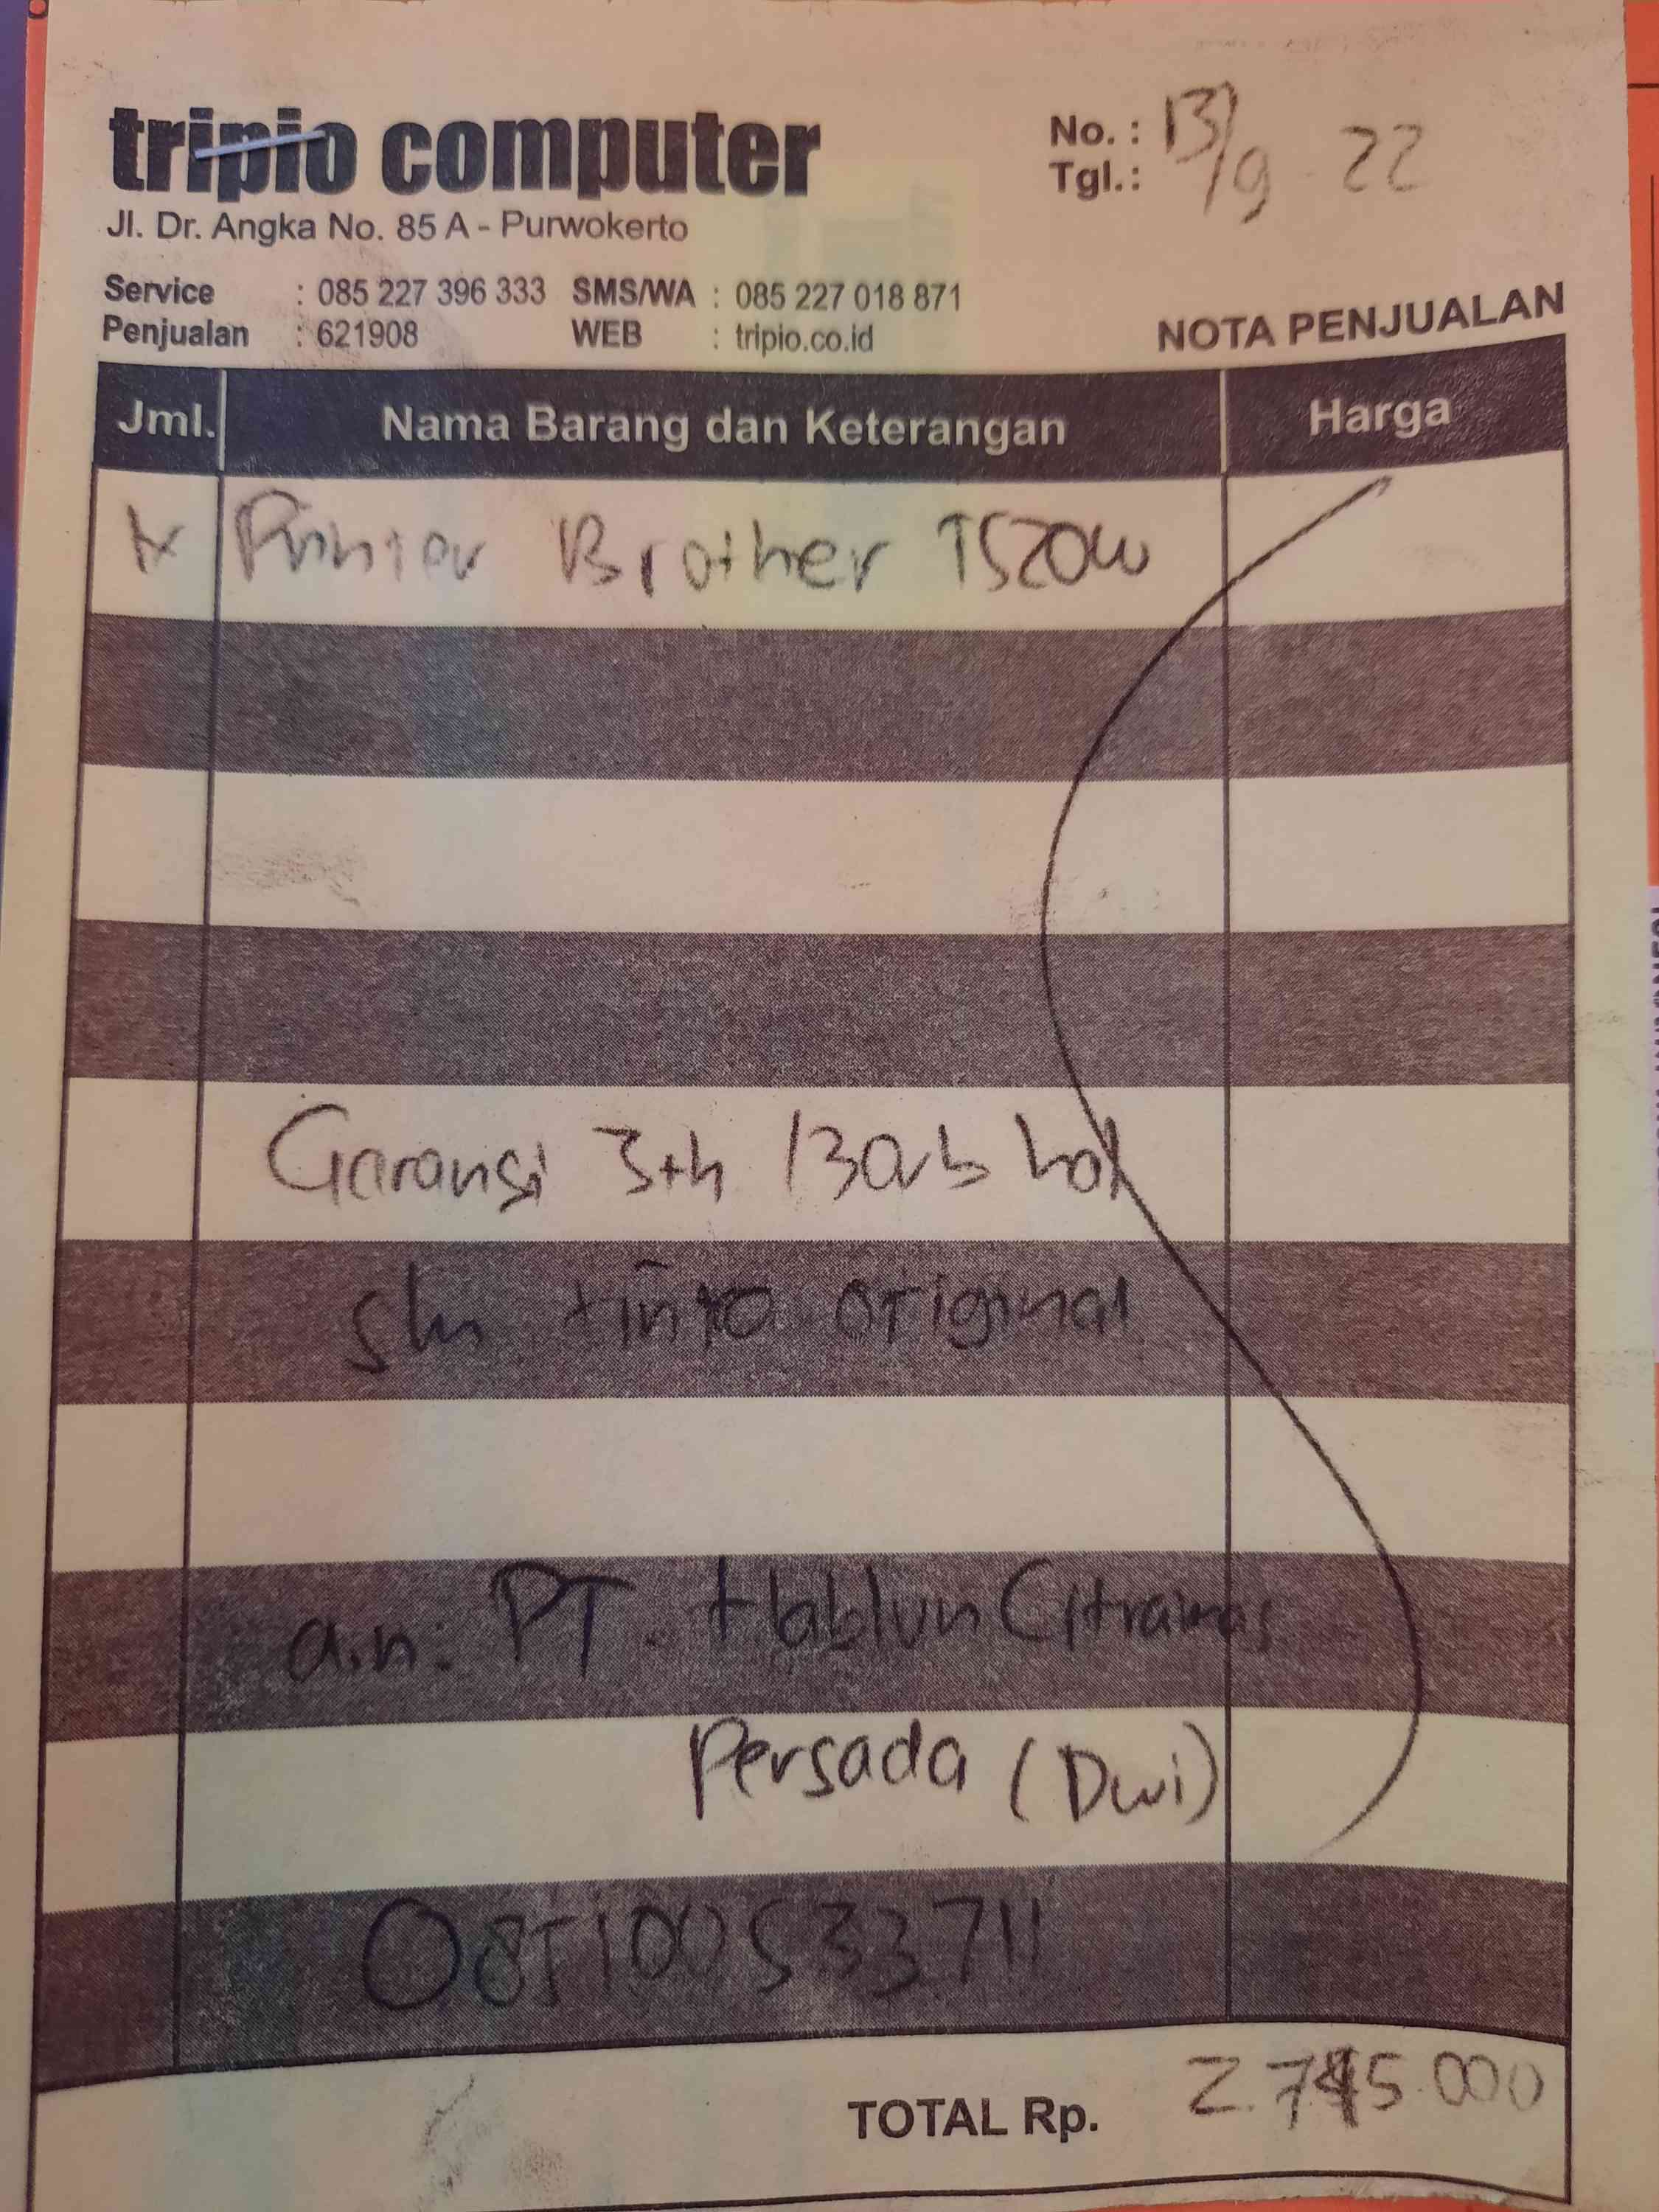 tripio computer
Jl. Dr. Angka No. 85 A - Purwokerto
No. :
Tgl. : 13/9 22
Service : 085 227 396 333 SMS/WA : 085 227 018 871
Penjualan : 621908 WEB : tripio.co.id
NOTA PENJUALAN
Jml. Nama Barang dan Keterangan Harga
1x Printer Brother T520W
Garansi 3th /30rb hal
slm tinta original
a.n: PT. Hablun Citramas
Persada (Dwi)
085100533711
TOTAL Rp.